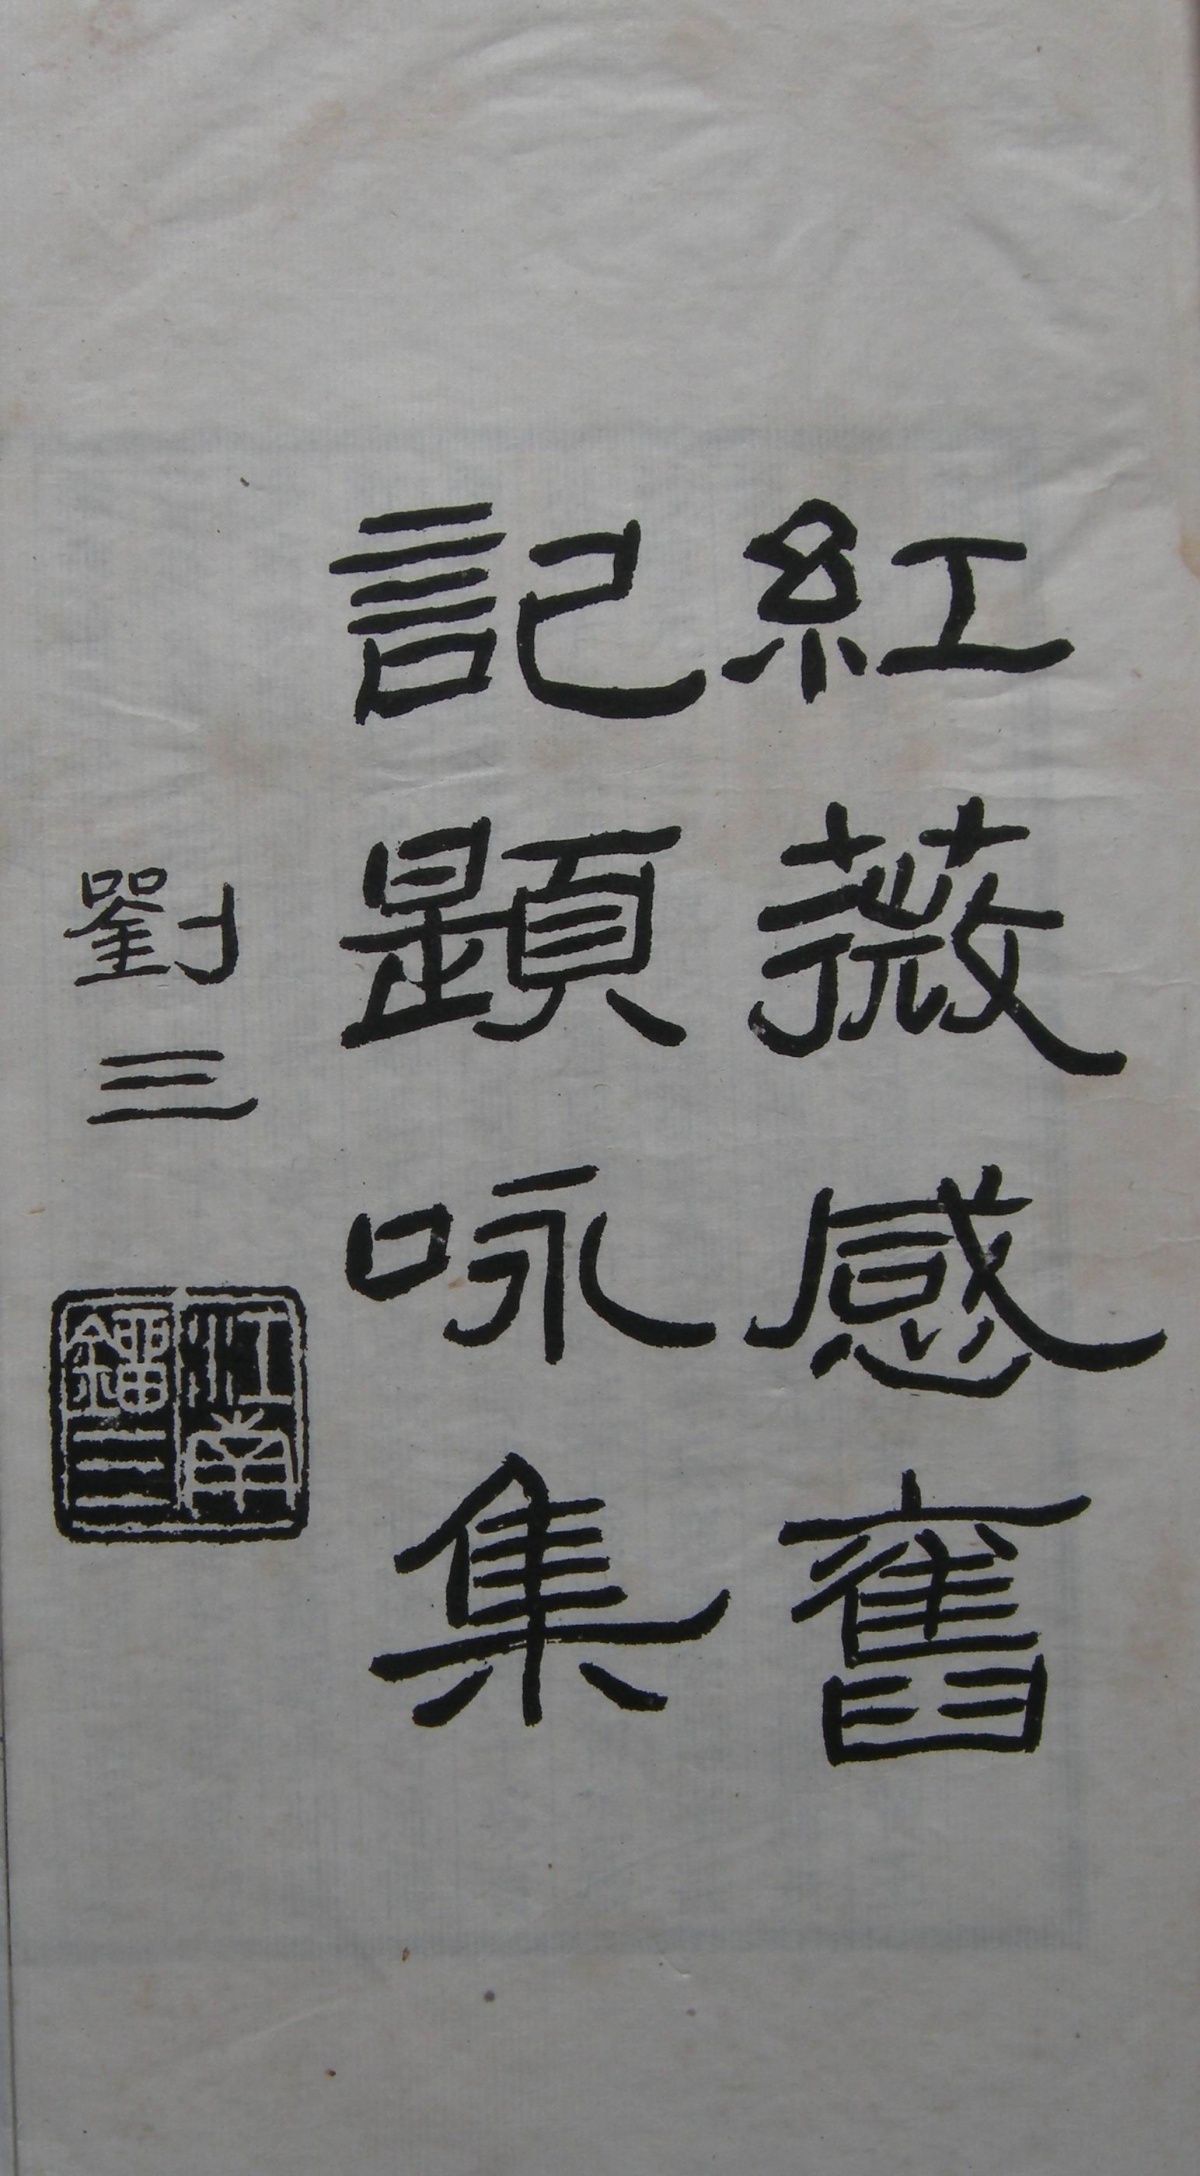 紅薇感舊
記題咏集
劉三
江南
鎦三